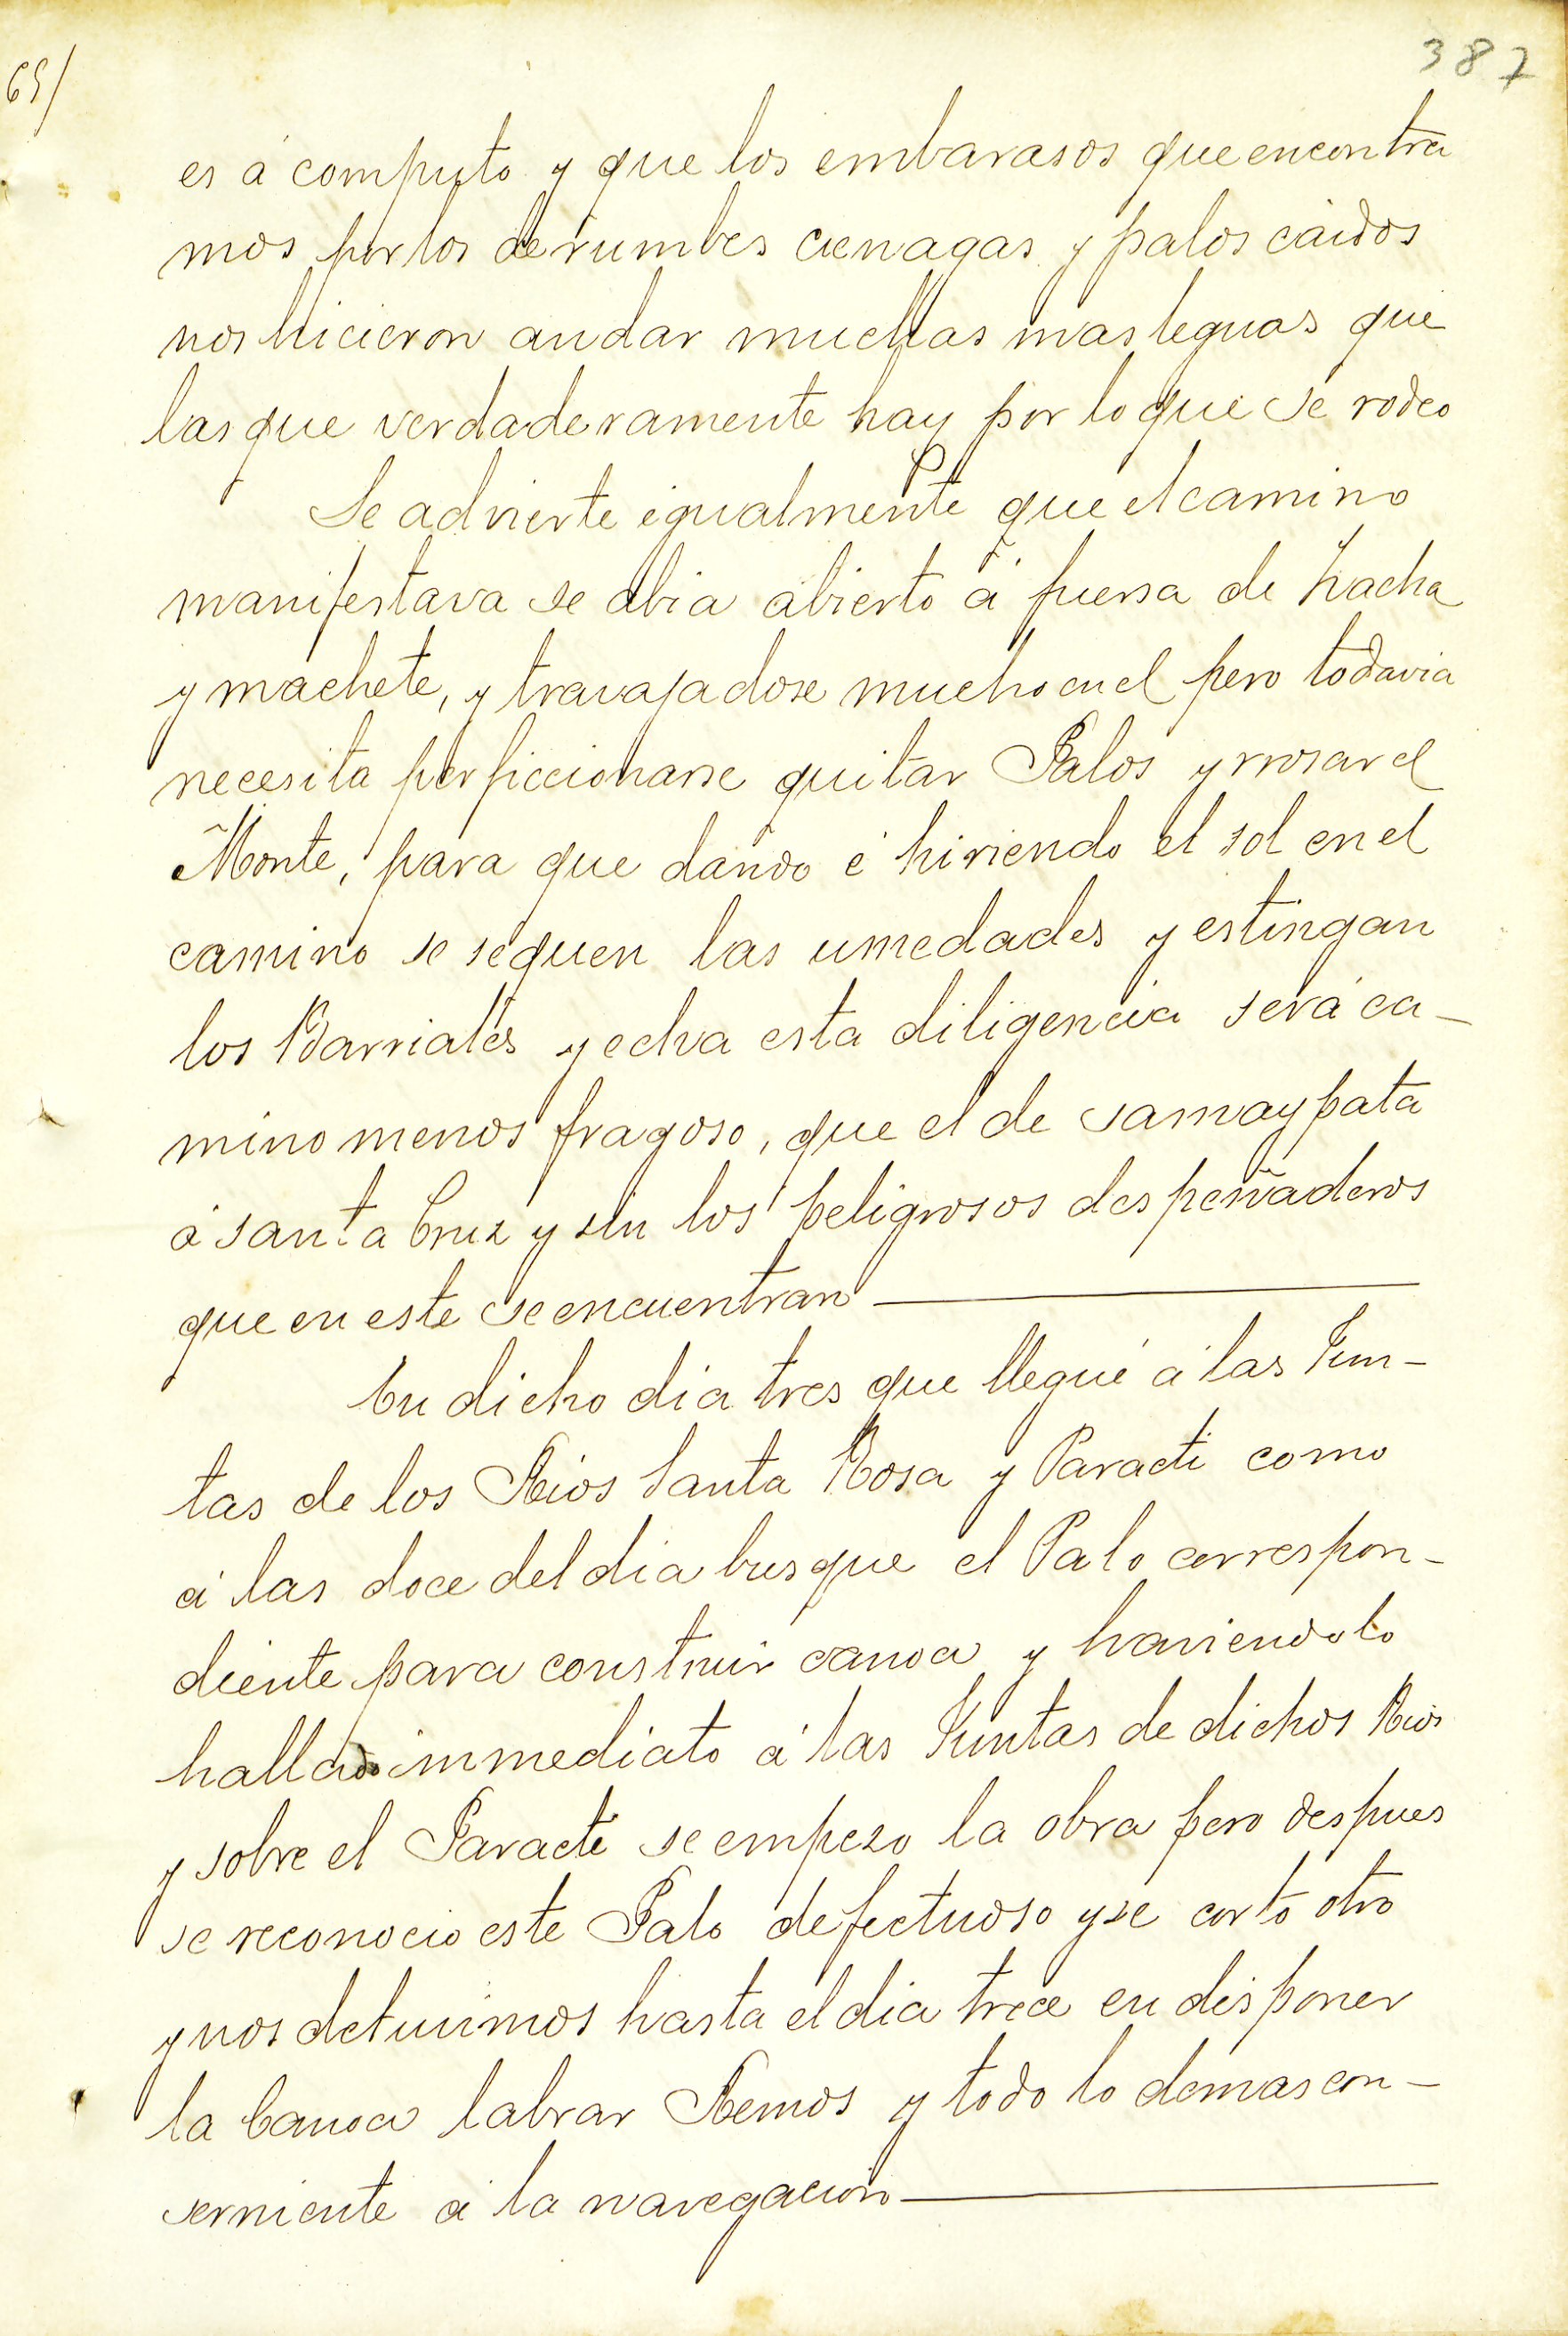 387
65/
es á computo y que los embarasos que encontra
mos por los derumbes cienagas y palos caidos
nos hicieron andar muchas mas leguas que
las que verdaderamente hay por lo que se rodeo
Se advierte igualmente que el camino
manifestava se abia abierto á fuersa de hacha
y machete, y travajadose mucho en el pero todavia
necesita perficcionarse quitar Palos y rrosar el
Monte, para que dando é hiriendo el sol en el
camino se sequen las umedades y estingan
los Barriales y echa esta diligencia será ca-
mino menos fragoso, que el de samaypata
á santa Cruz y sin los peligrosos despeñaderos
que en este se encuentran
En dicho dia tres que llegué á las Jun-
tas de los Rios Santa Rosa y Paracti como
á las doce del dia busque el Palo correspon-
diente para construir canoa y haviendolo
hallado immediato á las Juntas de dichos Rios
y sobre el Paracti se empezo la obra pero despues
se reconocio este Palo defectuoso y se corto otro
y nos detuvimos hasta el dia trece en disponer
la Canoa labrar Remos y todo lo demas con-
serniente á la navegacion